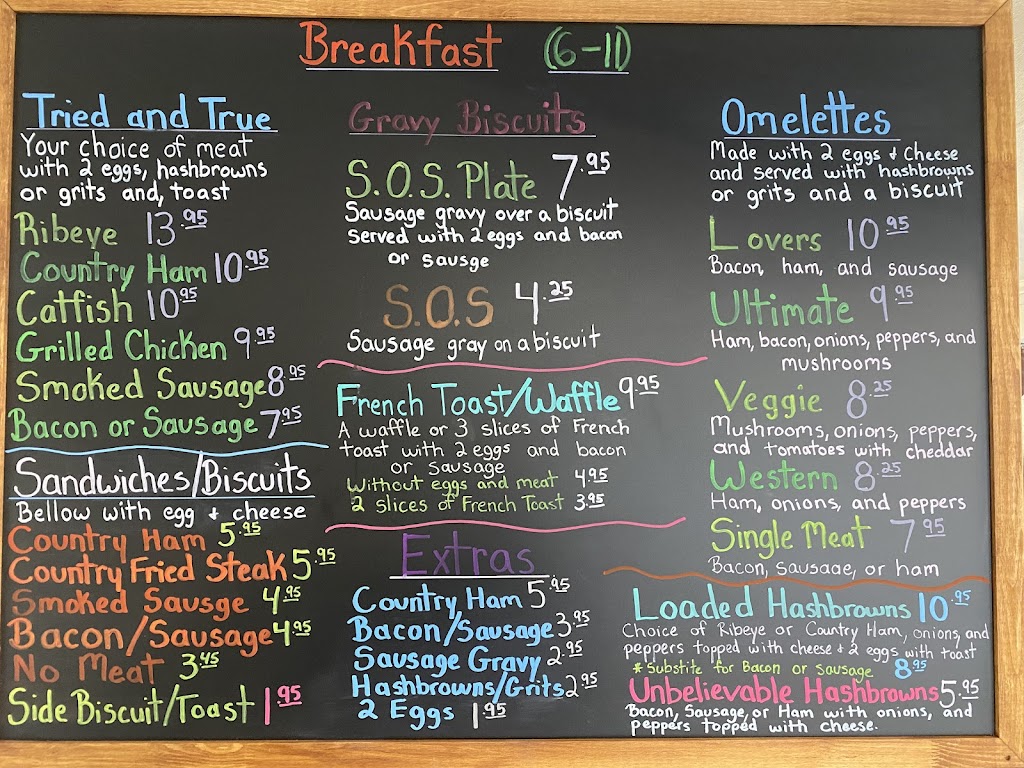 Breakfast (6-11)
Tried and True
Your choice of meat
with 2 eggs, hashbrowns
or grits and, toast
Ribeye 13.95
Country Ham 10.95
Catfish 10.95
Grilled Chicken 9.95
Smoked Sausage 8.95
Bacon or Sausage 7.95
Sandwiches/Biscuits
Bellow with egg + cheese
Country Ham 5.95
Country Fried Steak 5.95
Smoked Sausge 4.95
Bacon/Sausage 4.95
No Meat 3.45
Side Biscuit/Toast 1.95
Gravy Biscuits
S.O.S. Plate 7.95
Sausage gravy over a biscuit
served with 2 eggs and bacon
or savsge
S.O.S 4.25
Sausage gray on a biscuit
French Toast/Waffle 9.95
A waffle or 3 slices of French
toast with 2 eggs and bacon
or sausage
Without eggs and meat 4.95
2 slices of French Toast 3.95
Extras
Country Ham 5.95
Bacon/Sausage 3.95
Sausage Gravy 2.95
Hashbrowns/Grits 2.95
2 Eggs 1.95
Omelettes
Made with 2 eggs + Cheese
and served with hashbrowns
or grits and a biscuit
Lovers 10.95
Bacon, ham, and sausage
Ultimate 9.95
Ham, bacon, onions, peppers, and
mushrooms
Veggie 8.25
Mushrooms, onions, peppers,
and tomatoes with cheddar
Western 8.25
Ham, onions, and peppers
Single Meat 7.95
Bacon, sausage, or ham
Loaded Hashbrowns 10.95
Choice of Ribeye or Country Ham, onions, and
peppers topped with cheese + 2 eggs with toast
* Substite for Bacon or Sausage 8.95
Unbelievable Hashbrowns 5.95
Bacon, Sausage, or Ham with onions, and
peppers topped with cheese.